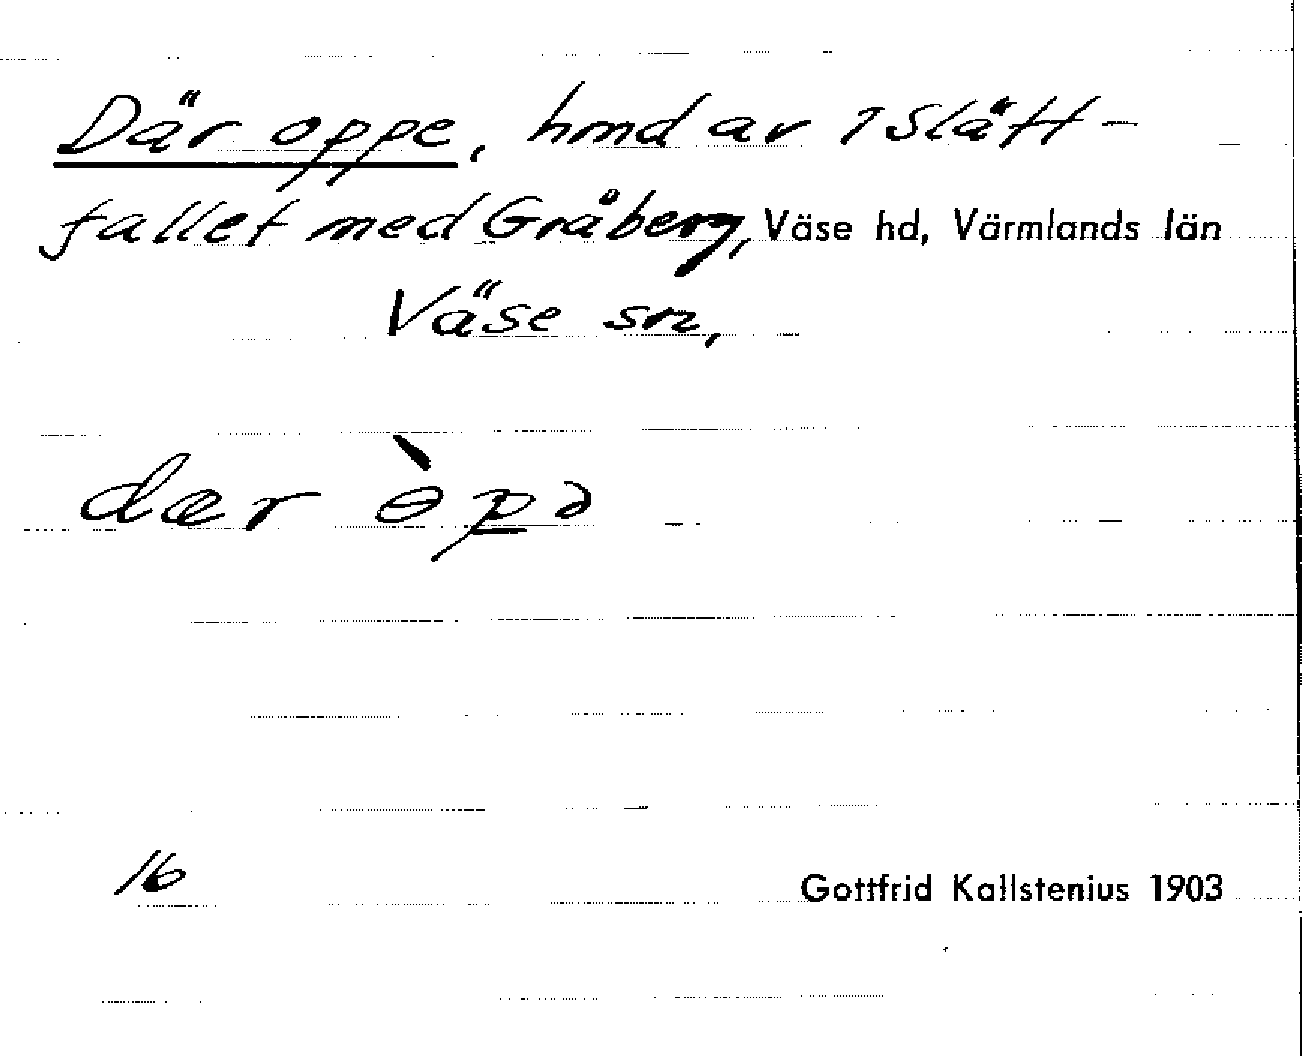 Där oppe, hmd av 1 Slätt-
fallet med Gråberg, Väse hd, Värmlands län
Väse sn,
dær ɵ̀pə
16
Gottfrid Kallstenius 1903